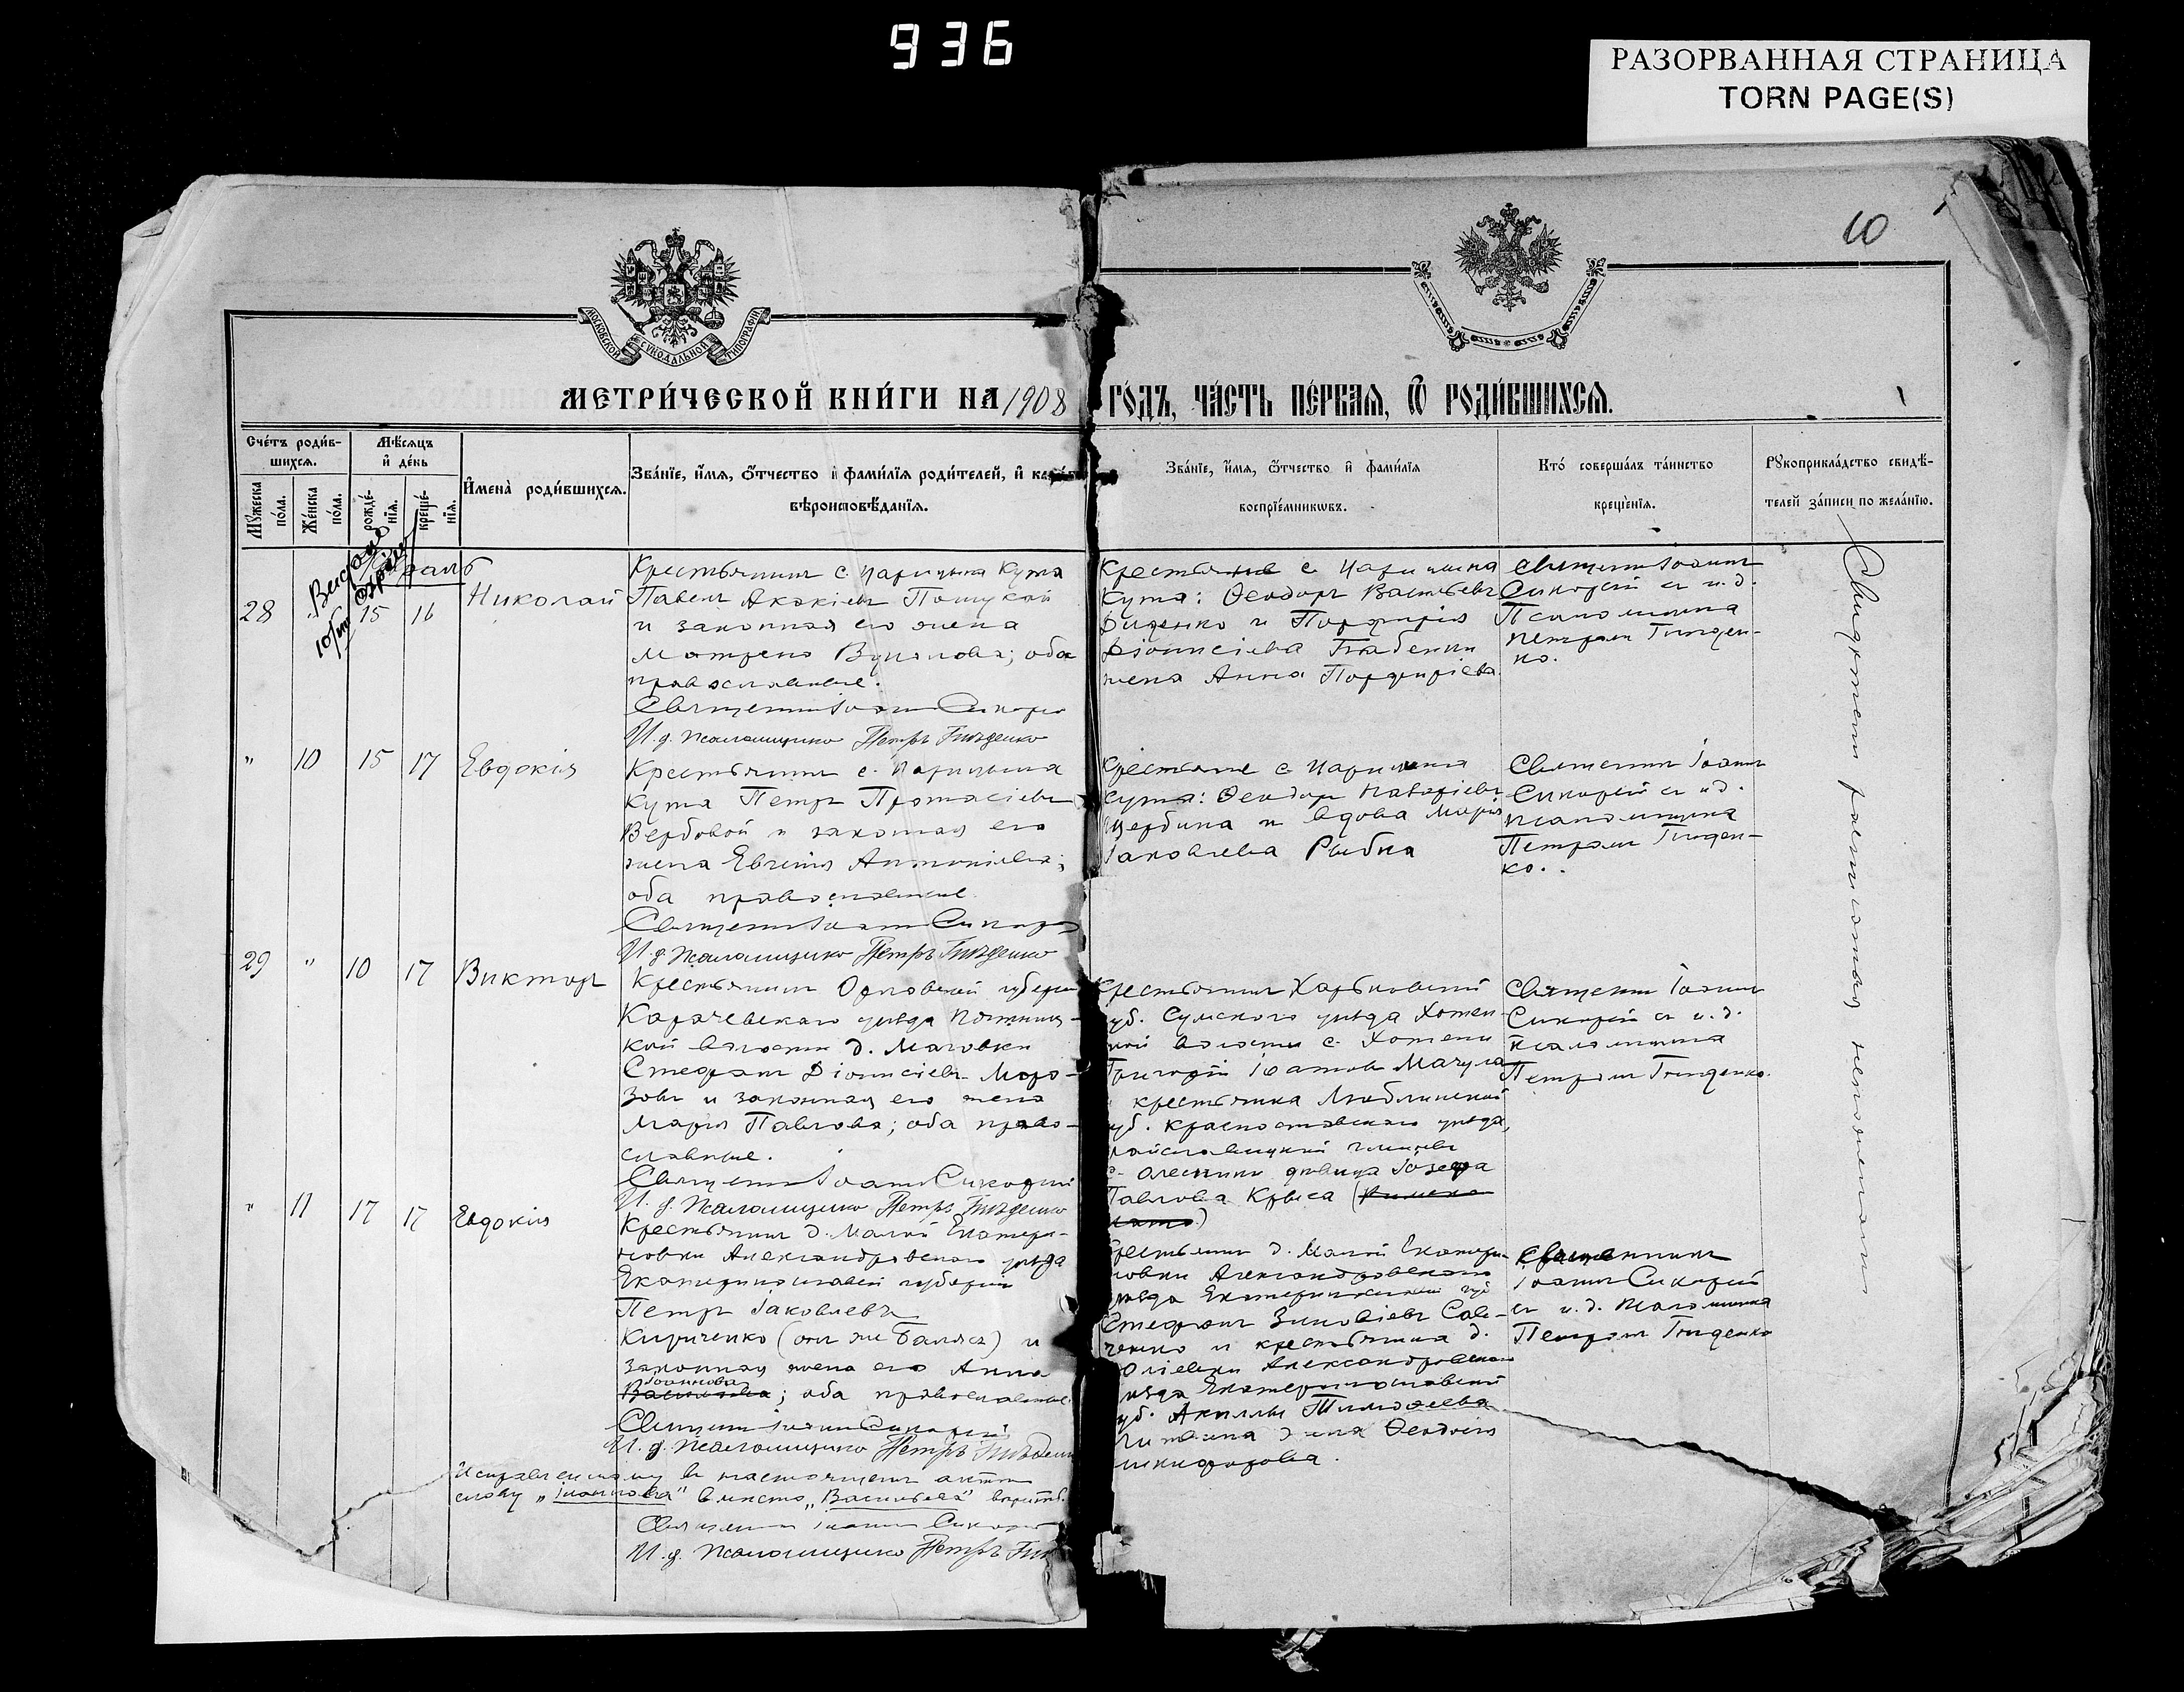 936
РАЗОРВАННАЯ СТРАНИЦА
TORN PAGE(S)
10
МОСКОВСКОЙ СѴНОДАЛЬНОЙ ТИПОГРАФІИ
МЕТРИ́ЧЕСКОЙ КНИ́ГИ НА 1908 ГО́ДЪ, ЧА́СТЬ ПЕ́РВАЯ, Ѿ РОДИ́ВШИХСЯ.
Сче́тъ роди́в-
шихся.
Мѣ́сяцъ
и҆ де́нь
Мꙋ́жеска
по́ла.
Же́нска
по́ла.
рожде́-
нїя.
креще́-
нїя.
И҆мена̀ роди́вшихся.
Зва́нїе, и҆́мя, ѻ҆́тчество и҆ фами́лїя роди́телей, и҆
вѣроисповѣ́данїя.
Зва́нїе, и҆́мя, ѻ҆́тчество и҆ фами́лїя
воспрїе́мникѡвъ.
Кто̀ соверша́лъ та́инство
креще́нїя.
Рꙋкоприкла́дство свидѣ́-
телей за́писи по жела́нїю.
Выдано
28 " 15 16
Николай
Крестьянинъ с. Царицына Кута
Павелъ Акакіевъ
и законная его жена
Матрена ; оба
православные.
Священникъ Іоаннъ
И. д. псаломщика Петръ Гнѣденко
Крестьяне с. Царицына
Кута: Ѳеодоръ Васильевъ
Диденко и Порфирія
Діонисіева
жена Анна Порфиріева.
Священникъ Іоаннъ
съ и. д.
Псаломщика
Петромъ Гнѣден-
ко.
" 10 15 17
Евдокія
Крестьянинъ с. Царицына
Кута Петръ Протасіевъ
Вербовой и законная его
жена Евгенія Антоніева;
оба православные.
Священникъ Іоаннъ
И. д. псаломщика Петръ Гнѣденко
Крестьяне с. Царицына
Кута: Ѳеодоръ
Щербина и вдова Марія
Іаковлева Рыбка
Священникъ Іоаннъ
съ и. д.
псаломщика
Петромъ Гнѣден-
ко.
29 " 10 17
Викторъ
Крестьянинъ Орловской губерніи
Карачевскаго уѣзда Пятниц-
кой волости д. Маговки
Стефанъ Діонисіевъ Моро-
зовъ и законная его жена
Марія Павлова; оба право-
славные.
Священникъ Іоаннъ
И. д. псаломщика Петръ Гнѣденко
Крестьянинъ Харьковской
губ. Сумского уѣзда Хотен-
ной волости с. Хотени
Григорій Іоанновъ Мачула
крестьянка Люблинской
губ. Красноставскаго уѣзда,
дѣвица Іозефа
Павлова Крыса
Священникъ Іоаннъ
съ и. д.
Псаломщика
Петромъ Гнѣденко.
" 11 17 17
Евдокія
Крестьянинъ д. Малой Екатери-
новки Александровскаго уѣзда
Екатеринославской губерніи
Петръ Іаковлевъ
Кириченко (онъ же Баляса) и
законная жена его Анна
Іоаннова
Васильева; оба православные.
Священникъ Іоаннъ
И. д. псаломщика Петръ
Крестьянинъ д. Малой Екатери-
новки Александровскаго
уѣзда Екатеринославской губ.
Стефанъ Зиновіевъ Сав-
ченко и крестьянина д.
Александровскаго
уѣзда Екатеринославской
губ. Тимоѳеева
жена Ѳеодосія
Никифорова.
Священникъ
Іоаннъ
съ и. д. Псаломщика
Петромъ Гнѣденко
Исправленному въ настоящемъ актѣ
слову „Іоаннова" вмѣсто „Васильева" вѣрить.
Священникъ Іоаннъ
И. д. псаломщика Петръ